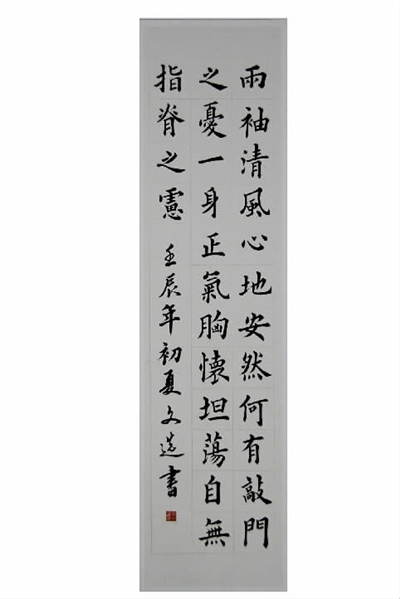 雨袖清風心地安然何有敲門
之憂一身正氣胸懷坦蕩自無
指脊之憲 壬辰年初夏文选書